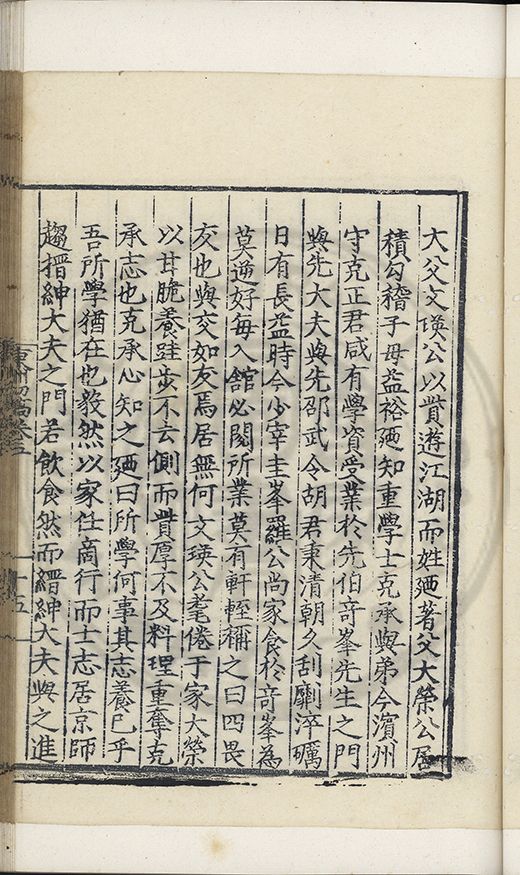 大父文瑛公以貲遊江湖而姓廼著父大榮公居
積勾稽子母益裕廼知重學士克承與弟今濱州
守克正君咸有學資受業於先伯竒峯先生之門
與先大夫與先邵武令胡君秉清朝久刮劘淬礪
日有長益時今少宰圭峯羅公尚家食於竒峯為
莫逆好每入舘必閱所業莫有軒輊稱之曰四畏
友也與交如友焉居無何文瑛公耄倦于家大榮
以甘脆養跬步不去側而貲厚不及料理重奪克
承志也克承心知之廼曰所學何事其志養已乎
吾所學猶在也毅然以家任商行而士志居京師
趨搢紳大夫之門若飲食然而縉紳大夫與之進
卷五
十五